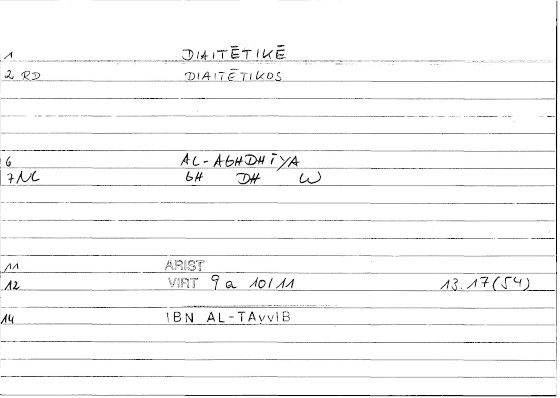 1 DIAITĒTIKĒ
2 RD DIAITĒTIKOS
6 AL-AGHDHĪYA
7 NL GH DH W
11 ARIST
12 VIRT 9 a 10/11 13.17(54)
14 IBN AL-TAYYIB